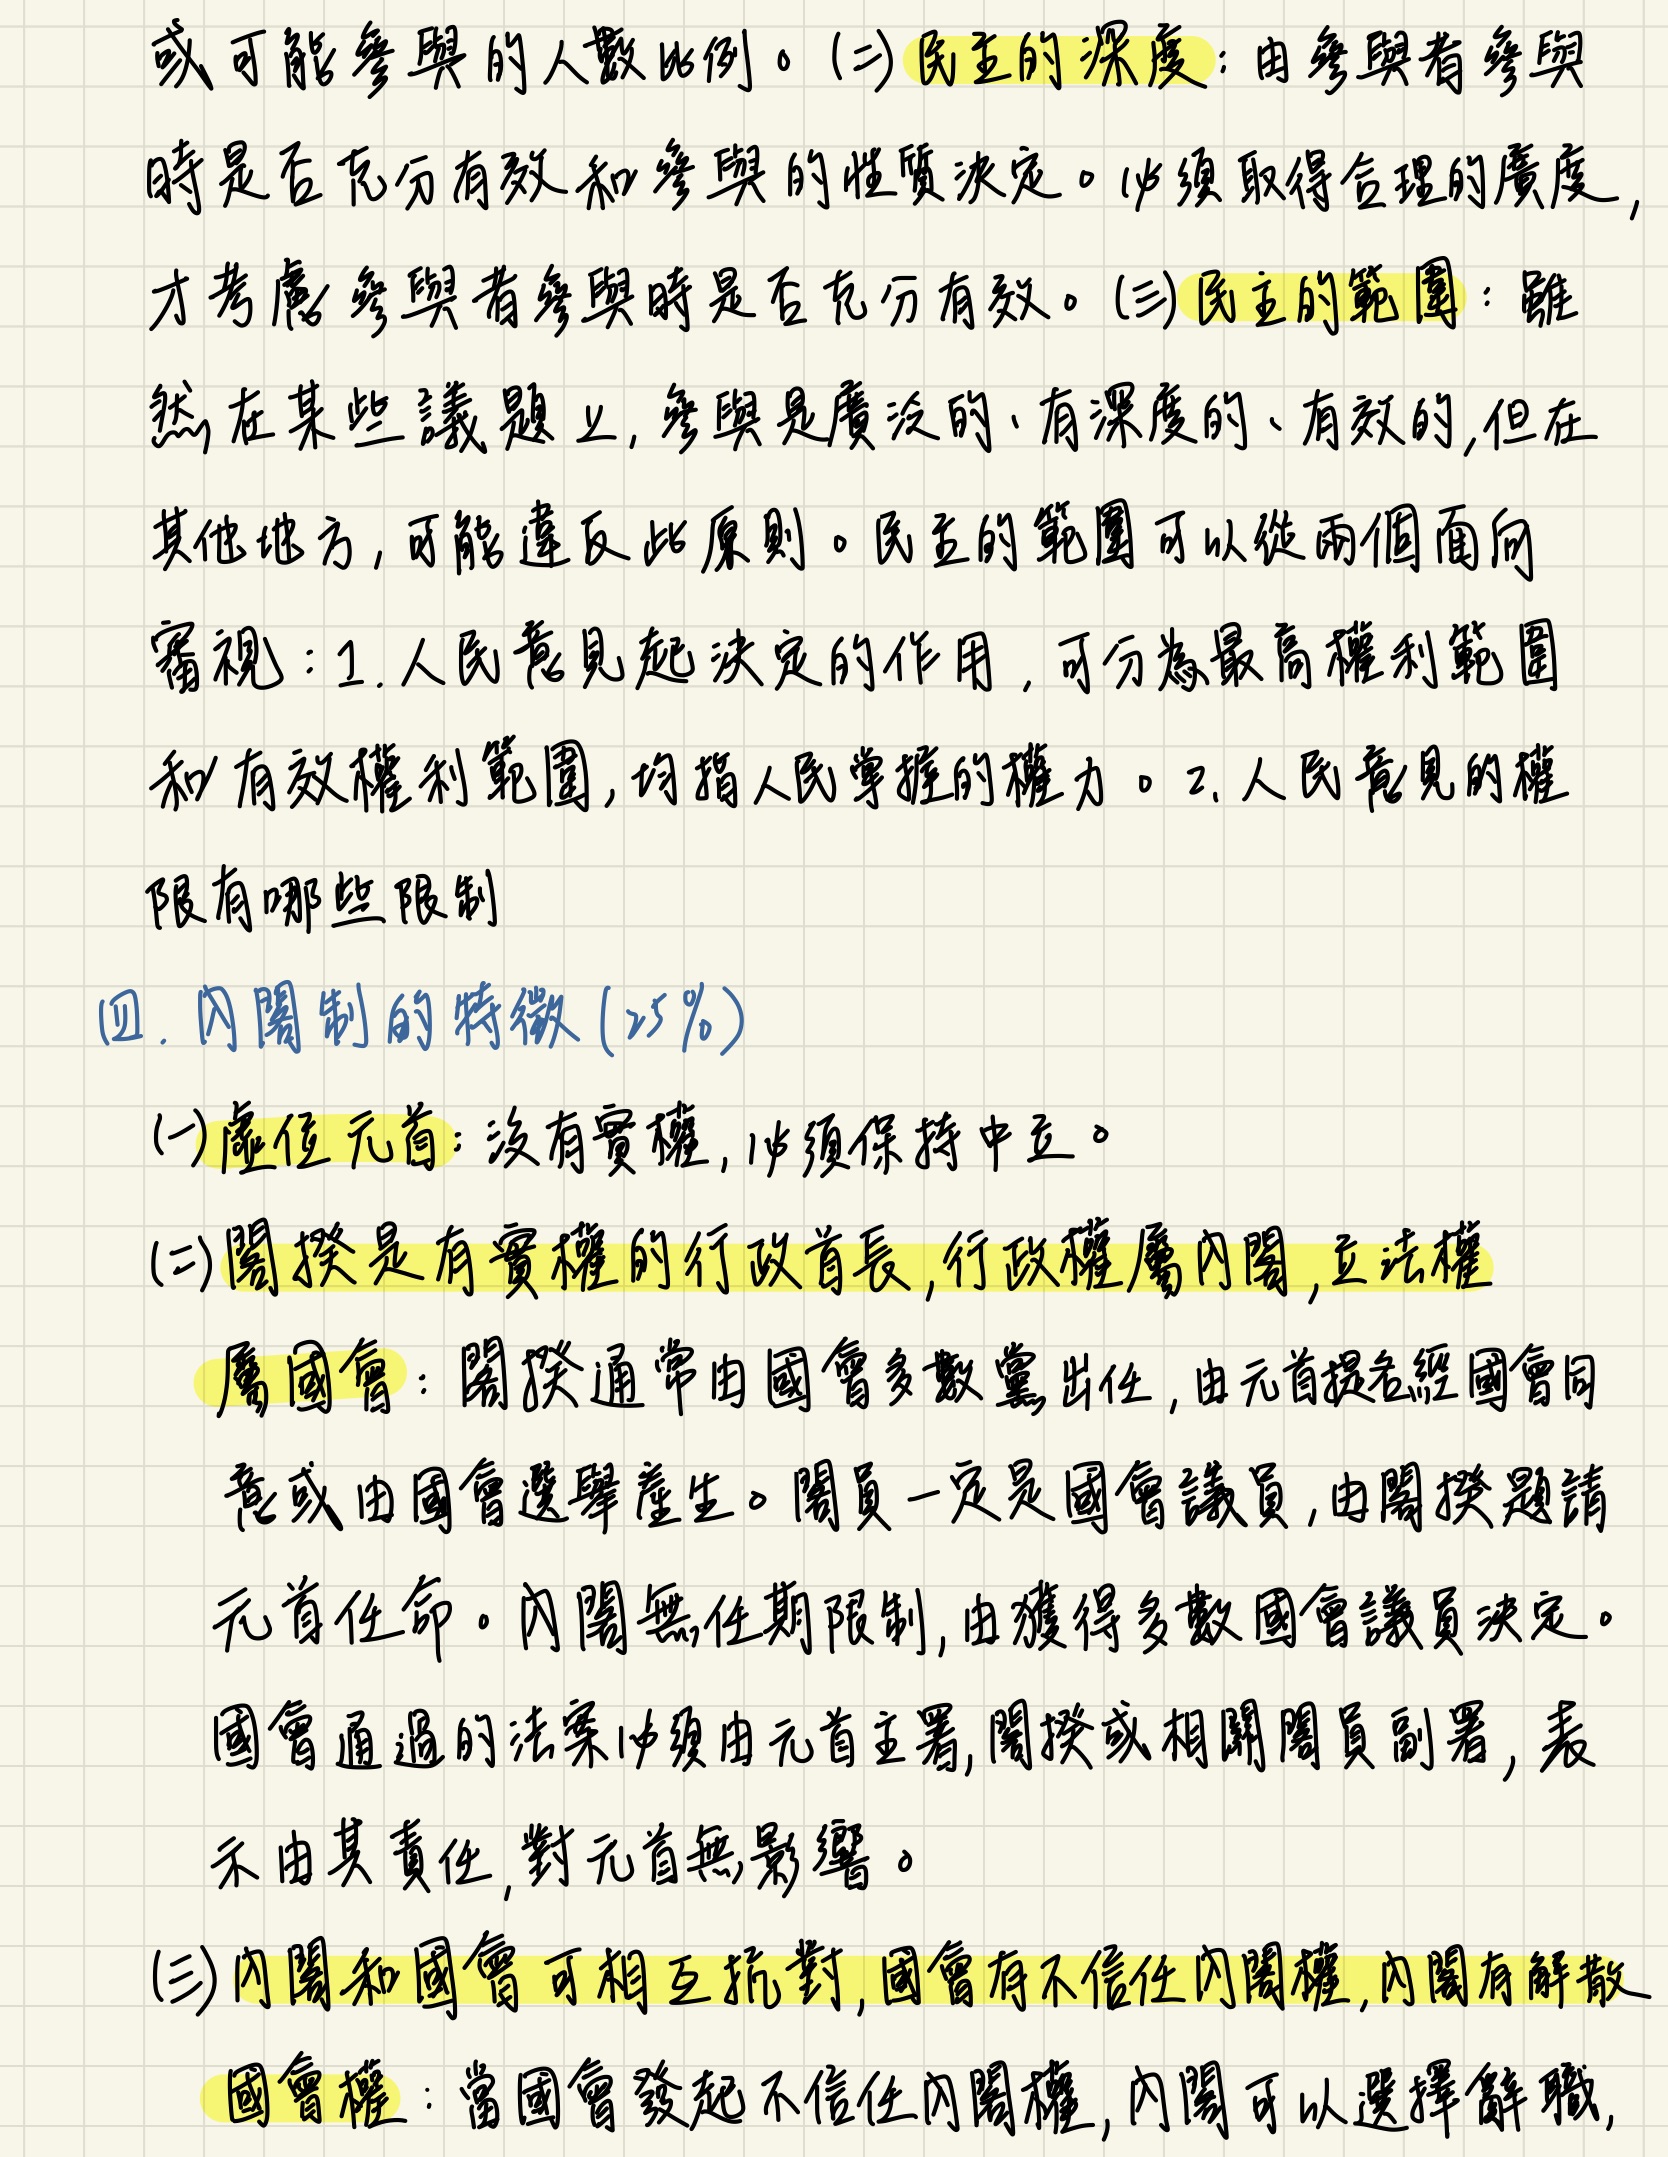 或可能參與的人數比例。(二)民主的深度:由參與者參與
時是否充分有效和參與的性質決定。必須取得合理的廣度,
才考慮參與者參與時是否充分有效。(三)民主的範圍:雖
然在某些議題上,參與是廣泛的、有深度的、有效的,但在
其他地方,可能違反此原則。民主的範圍可以從兩個面向
審視:1.人民意見起決定的作用,可分為最高權利範圍
和有效權利範圍,均指人民掌握的權力。2.人民意見的權
限有哪些限制
四.內閣制的特徵(25%)
(一)虛位元首:沒有實權,必須保持中立。
(二)閣揆是有實權的行政首長,行政權屬內閣,立法權
屬國會:閣揆通常由國會多數黨出任,由元首提名經國會同
意或由國會選舉產生。閣員一定是國會議員,由閣揆題請
元首任命。內閣無任期限制,由獲得多數國會議員決定。
國會通過的法案必須由元首主署,閣揆或相關閣員副署,表
示由其責任,對元首無影響。
(三)內閣和國會可相互抗對,國會有不信任內閣權,內閣有解散
國會權:當國會發起不信任內閣權,內閣可以選擇辭職,